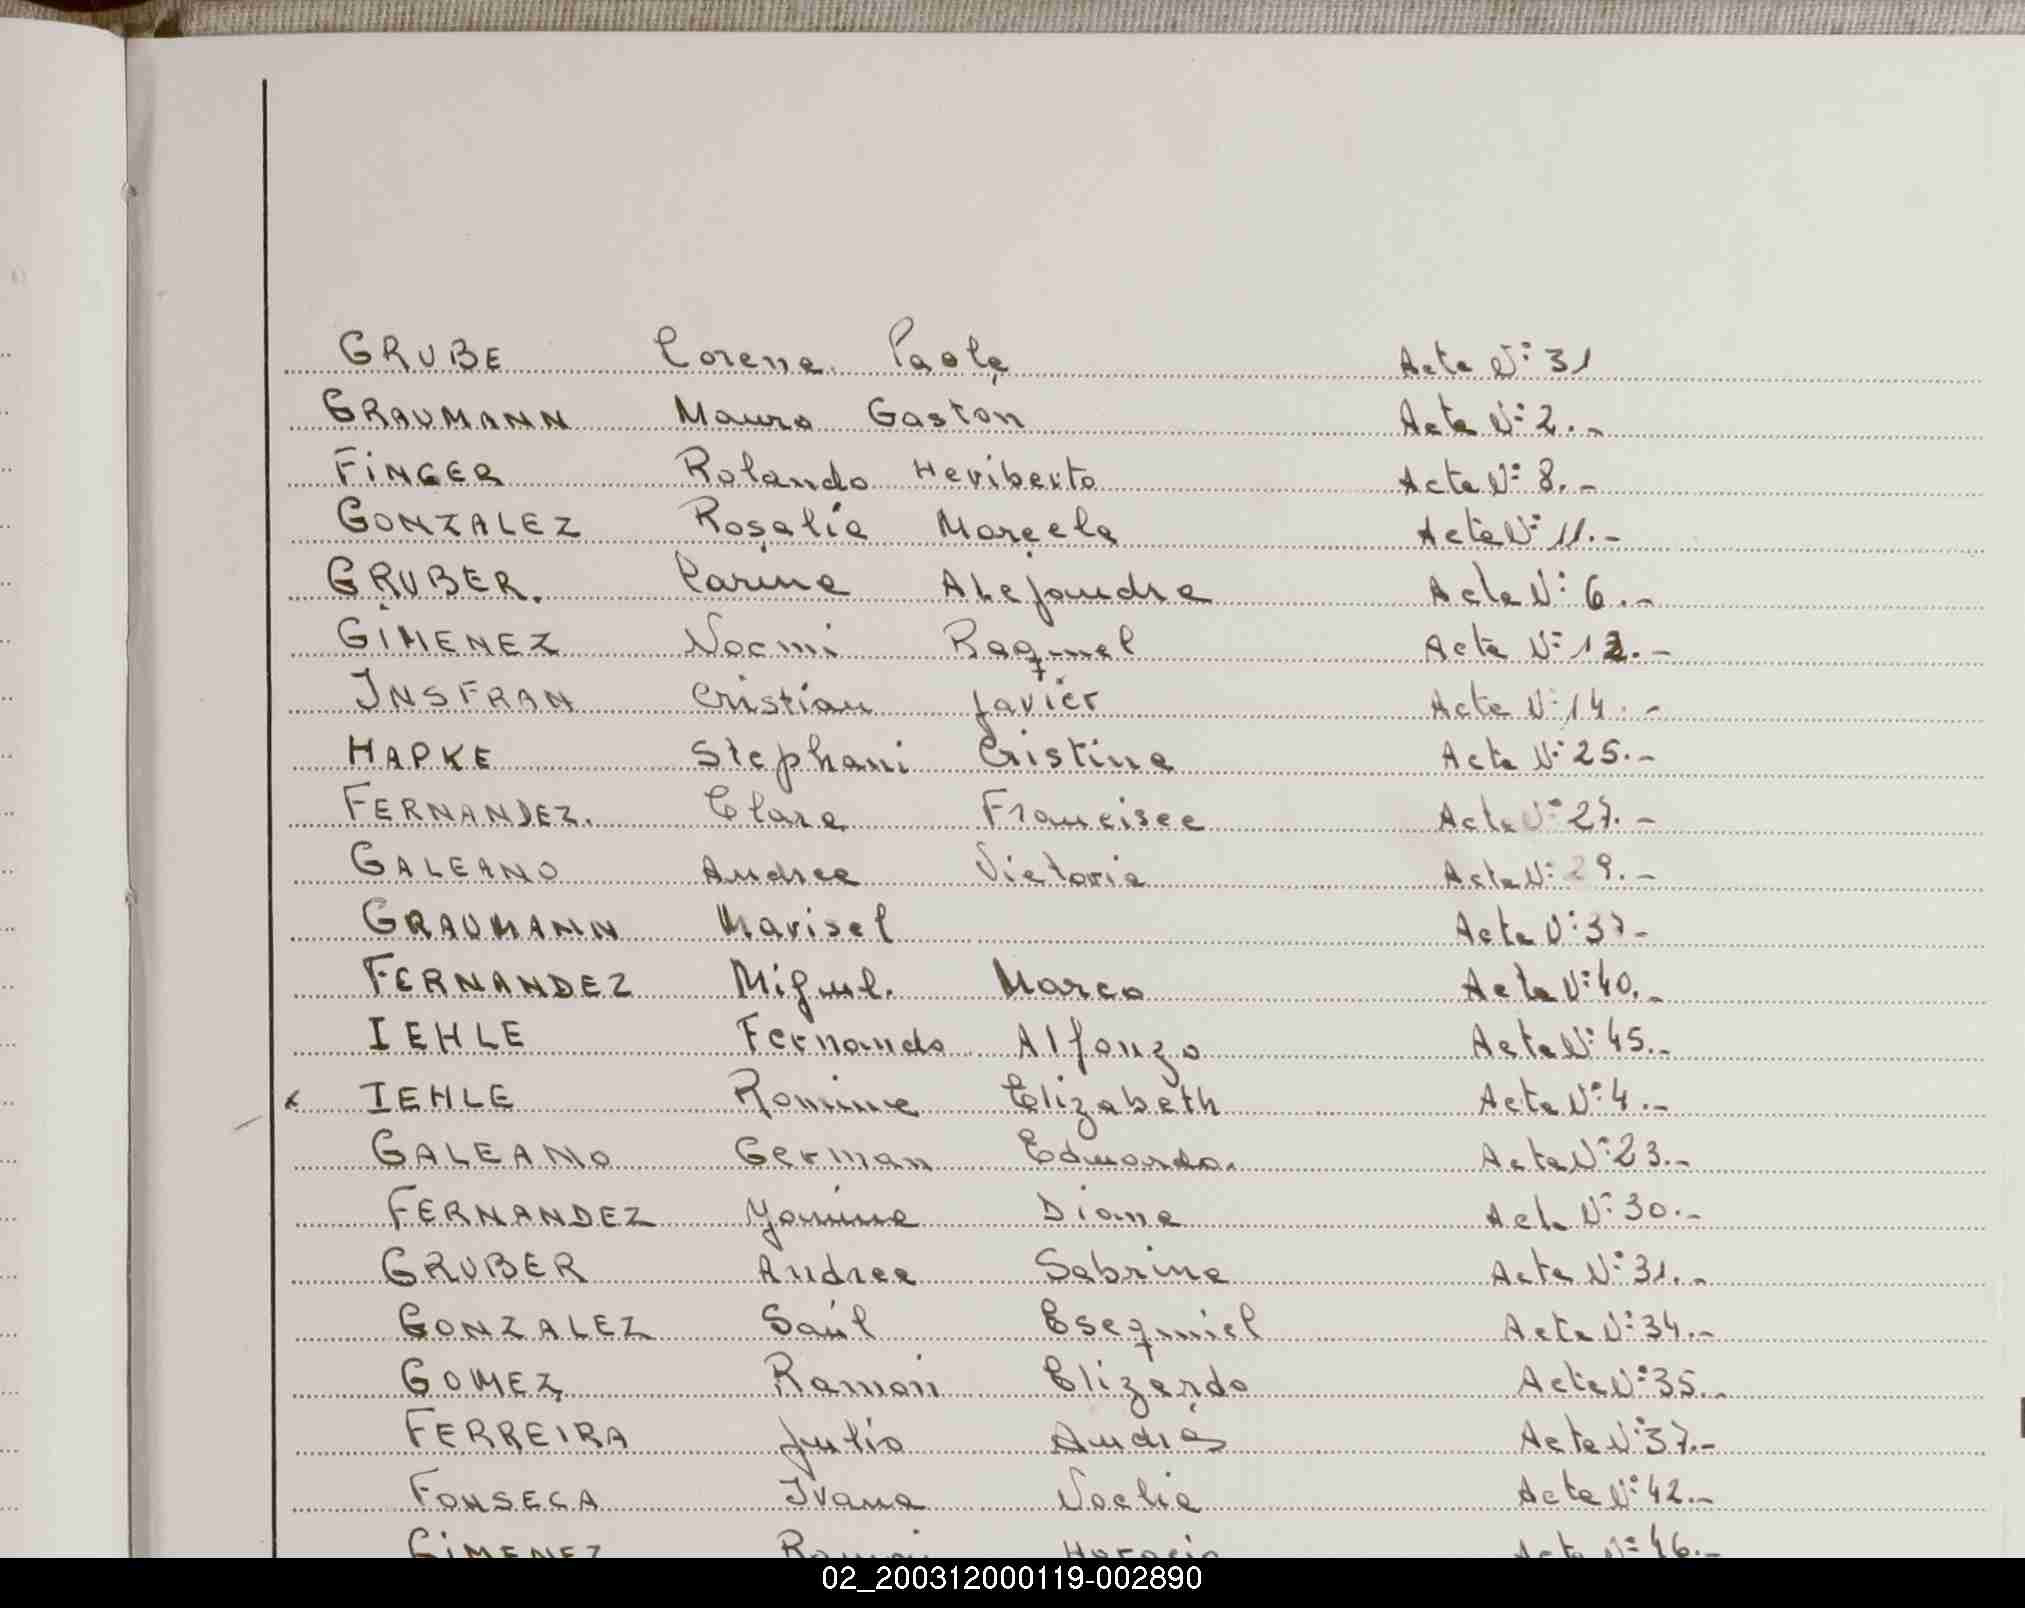 GRUBE Lorena Paola Acta Nº 31
GRAUMANN Mauro Gaston Acta Nº 2.-
FINGER Rolando Heriberto Acta Nº 8.-
GONZALEZ Rosalia Marcela Acta Nº 11.-
GRUBER. Carina Alejandra Acta Nº 6.-
GIMENEZ Noemi Raquel Acta Nº 12.-
INSFRAN Cristian Javier Acta Nº 14.-
HAPKE Stephani Cristina Acta Nº 25.-
FERNANDEZ. Clara Francisca Acta Nº 27.-
GALEANO Andrea Victoria Acta Nº 29.-
GRAUMANN Marisel Acta Nº 37-
FERNANDEZ Miguel. Marco Acta Nº 40.-
IEHLE Fernando Alfonzo Acta Nº 45.-
x IEHLE Romina Elizabeth Acta Nº 4.-
GALEANO German Eduardo. Acta Nº 23.-
FERNANDEZ Yanina Diana Acta Nº 30.-
GRUBER Andrea Sabrina Acta Nº 31.-
GONZALEZ Saúl Esequiel Acta Nº 34.-
GOMEZ Ramon Elizardo Acta Nº 35.-
FERREIRA Julio Andrés Acta Nº 37.-
FONSECA Ivana Noelia Acta Nº 42.-
GIMENEZ Horacio Acta Nº 46.-
02_200312000119-002890